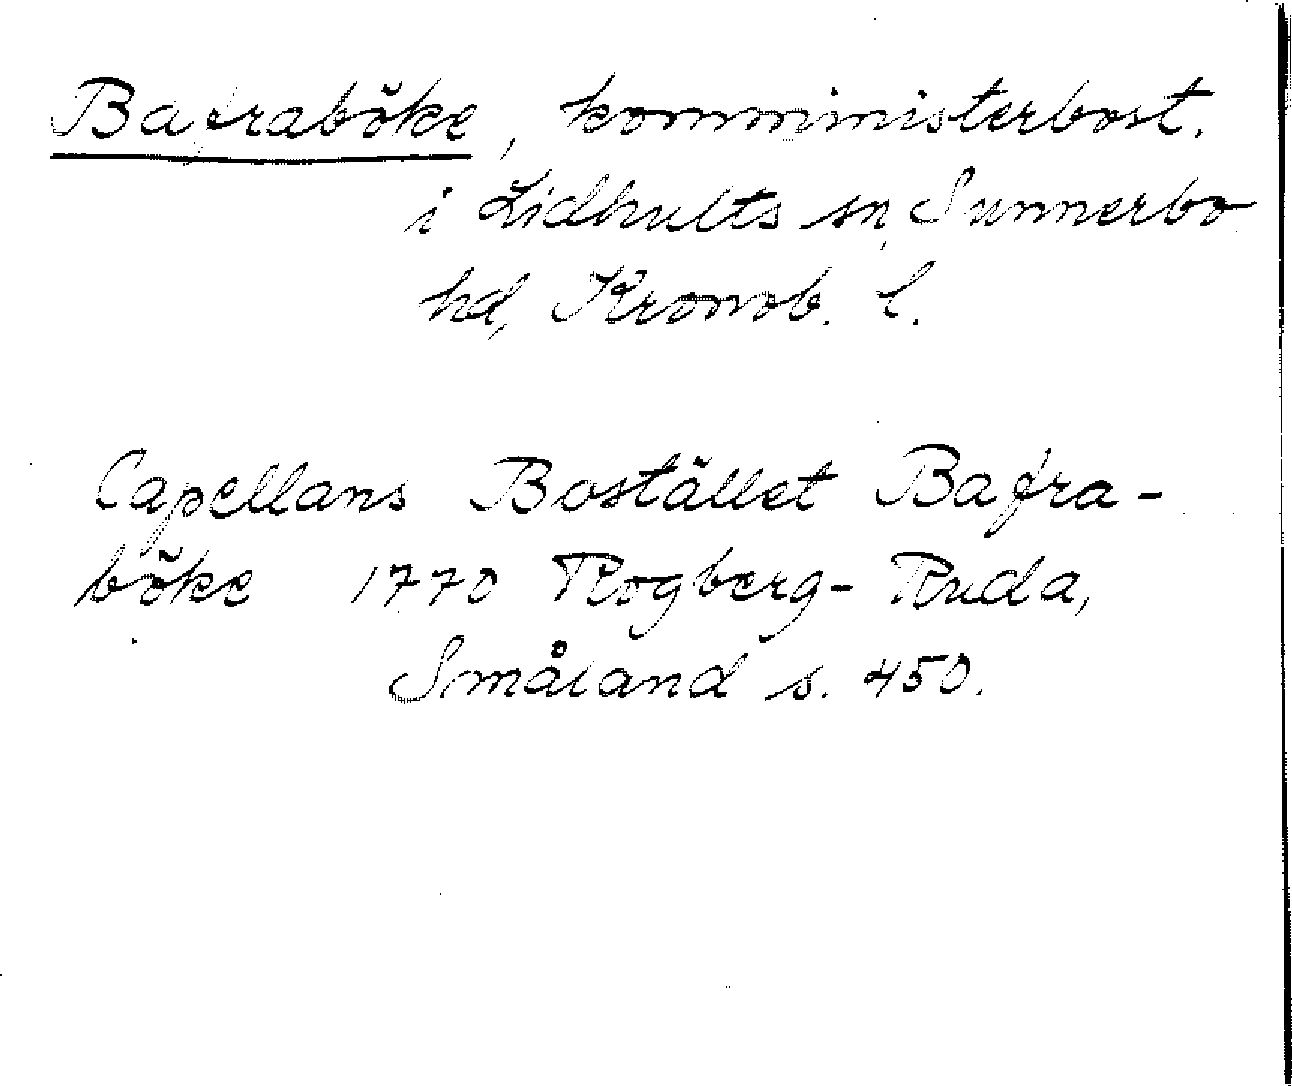 Bafraböke, komministerbost.
i Lidhults sn, Sunnerbo
hd, Kronob. l.
Capellans Bostället Bafra-
böke 1770 Rogberg-Ruda,
Småland s. 450.